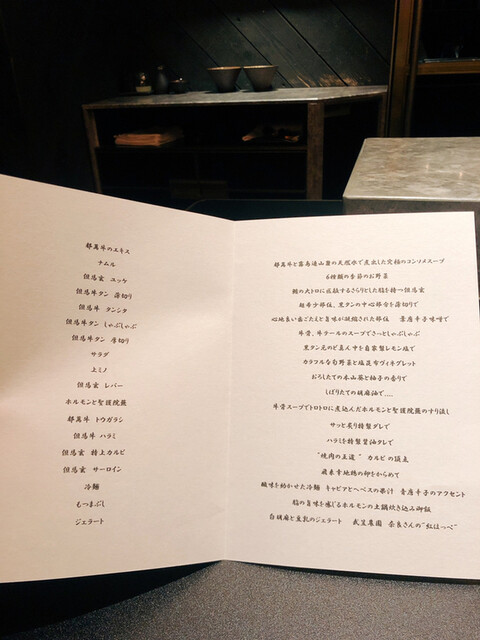 都萬牛のエキス
ナムル
但馬玄 ユッケ
但馬牛タン 薄切り
但馬牛 タンシタ
但馬牛タン しゃぶしゃぶ
但馬牛タン 厚切り
サラダ
上ミノ
但馬玄 レバー
ホルモンと聖護院蕪
都萬牛 トウガラシ
但馬牛 ハラミ
但馬玄 特上カルビ
但馬玄 サーロイン
冷麺
もつまぶし
ジェラート
都萬牛と霧島連山麓の天然水で煮出した究極のコンソメスープ
6種類の季節のお野菜
鮪の大トロに匹敵するさらりとした脂を持つ但馬玄
超希少部位、黒タンの中心部分を薄切りで
心地良い歯ごたえと旨味が凝縮された部位 青唐辛子味噌で
牛骨、牛テールのスープでさっとしゃぶしゃぶ
黒タン元のど真ん中を自家製レモン塩で
カラフルな旬野菜と塩昆布ヴィネグレット
おろしたての本山葵と柚子の香りで
しぼりたての胡麻油で....
牛骨スープでトロトロに煮込んだホルモンと聖護院蕪のすり流し
サッと炙り特製ダレで
ハラミを特製醤油タレで
"焼肉の王道" カルビの頂点
蔵王幸地鶏の卵をからめて
酸味を効かせた冷麺 キャビアとヘベスの果汁 青唐辛子のアクセント
脂の旨味を感じるホルモンの土鍋炊き込み御飯
白胡麻と豆乳のジェラート 武笠農園 奈良さんの"紅ほっぺ"